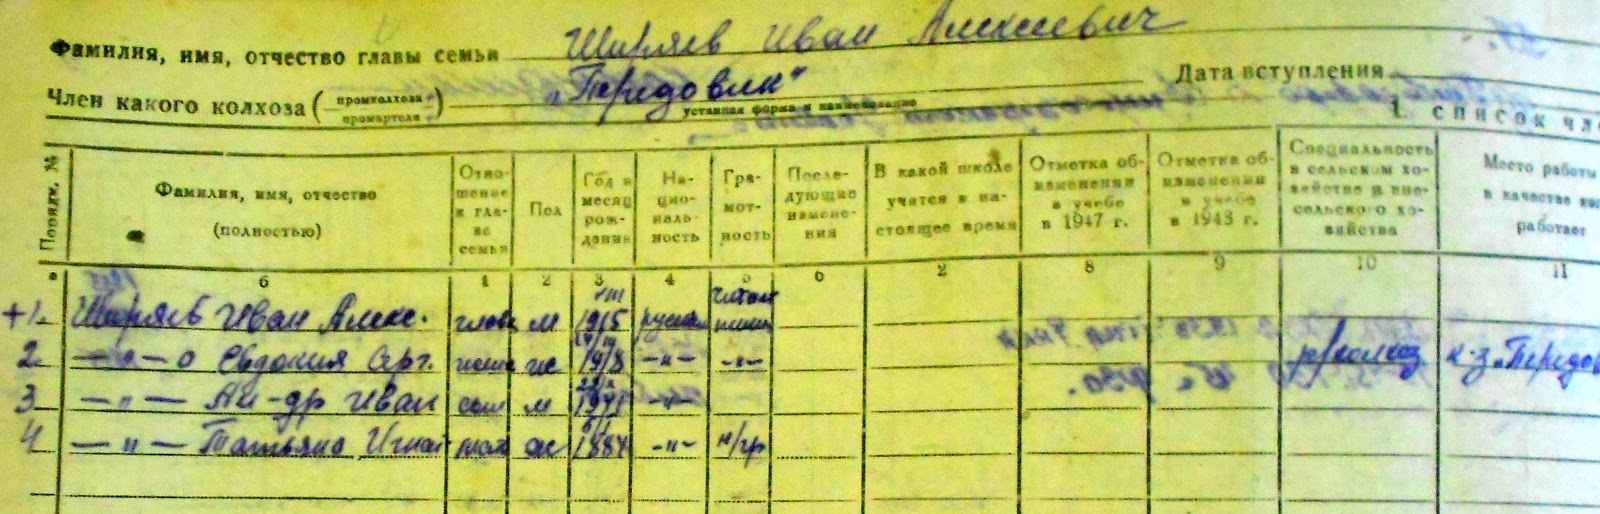 Фамилия, имя, отчество главы семьи Ширяев Иван Алексеевич
Член какого колхоза (промколхоза, промартели) „Передовик“ Дата вступления
уставная форма и наименование
1. список чле
Порядк. № Фамилия, имя, отчество (полностью) Отношение к главе семьи Пол Год и месяц рождения Национальность Грамотность Последующие изменения В какой школе учатся в настоящее время Отметка об изменении в учебе в 1947 г. Отметка об изменении в учебе в 1948 г. Специальность в сельском хозяйстве и вне сельского хозяйства Место работы в качестве ко работает
а б 1 2 3 4 5 6 7 8 9 10 11
+1. Ширяев Иван Алекс. глава м VIII 1915 русский читает пишет
2. —"— Евдокия Серг. жена ж 1918 —"— —"— р/колхоз к-з „Передов
3 —"— Ан-др Иван сын м 1941 —"—
4 —"— Татьяна Игнат мать ж 1884 —"— н/гр